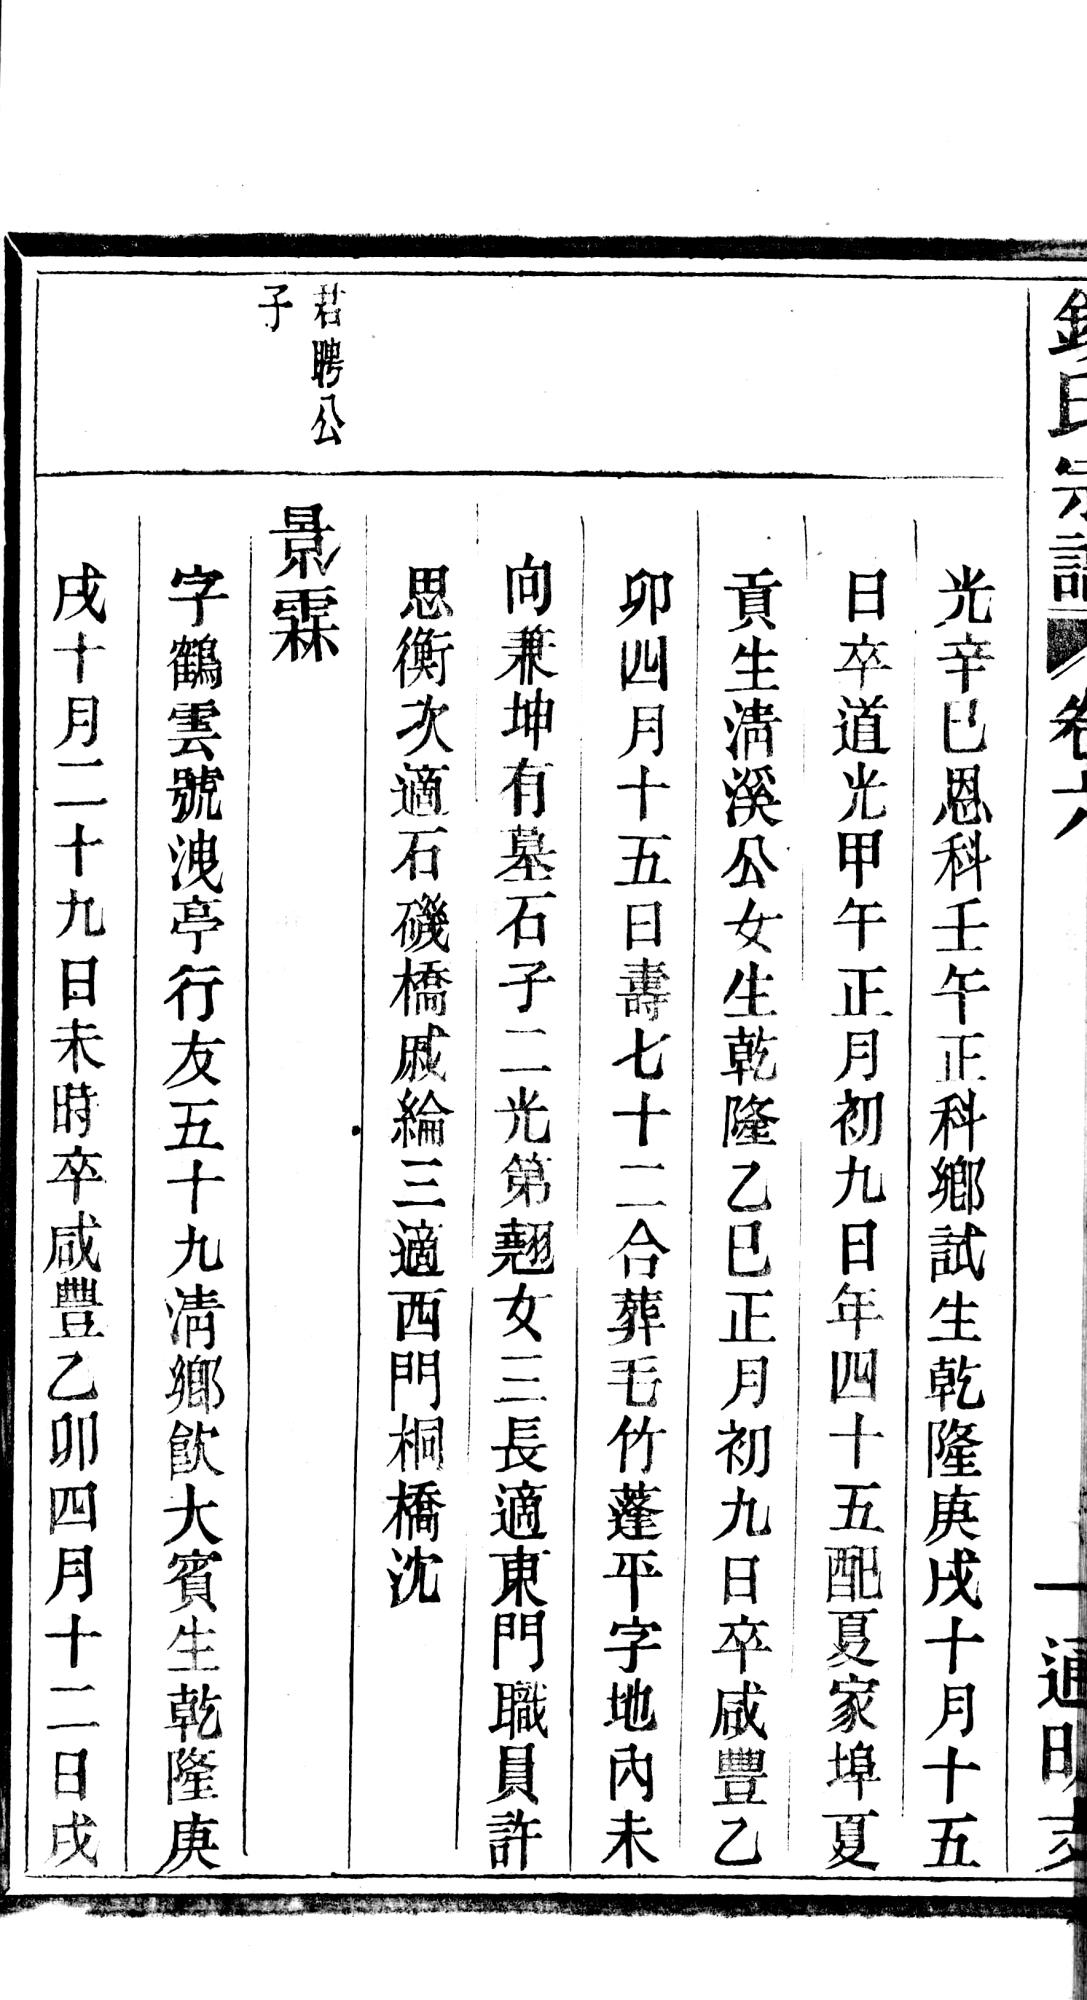 氏宗譜 卷六 一 通明支
光辛巳恩科壬午正科鄉試生乾隆庚戌十月十五
日卒道光甲午正月初九日年四十五配夏家埠夏
貢生清溪公女生乾隆乙巳正月初九日卒咸豐乙
卯四月十五日壽七十二合葬毛竹蓬平字地內未
向兼坤有墓石子二光第翹女三長適東門職員許
思衡次適石磯橋戚綸三適西門桐橋沈
君聘公
子
景霖
字鶴雲號洩亭行友五十九清鄉飲大賓生乾隆庚
戌十月二十九日未時卒咸豐乙卯四月十二日戌